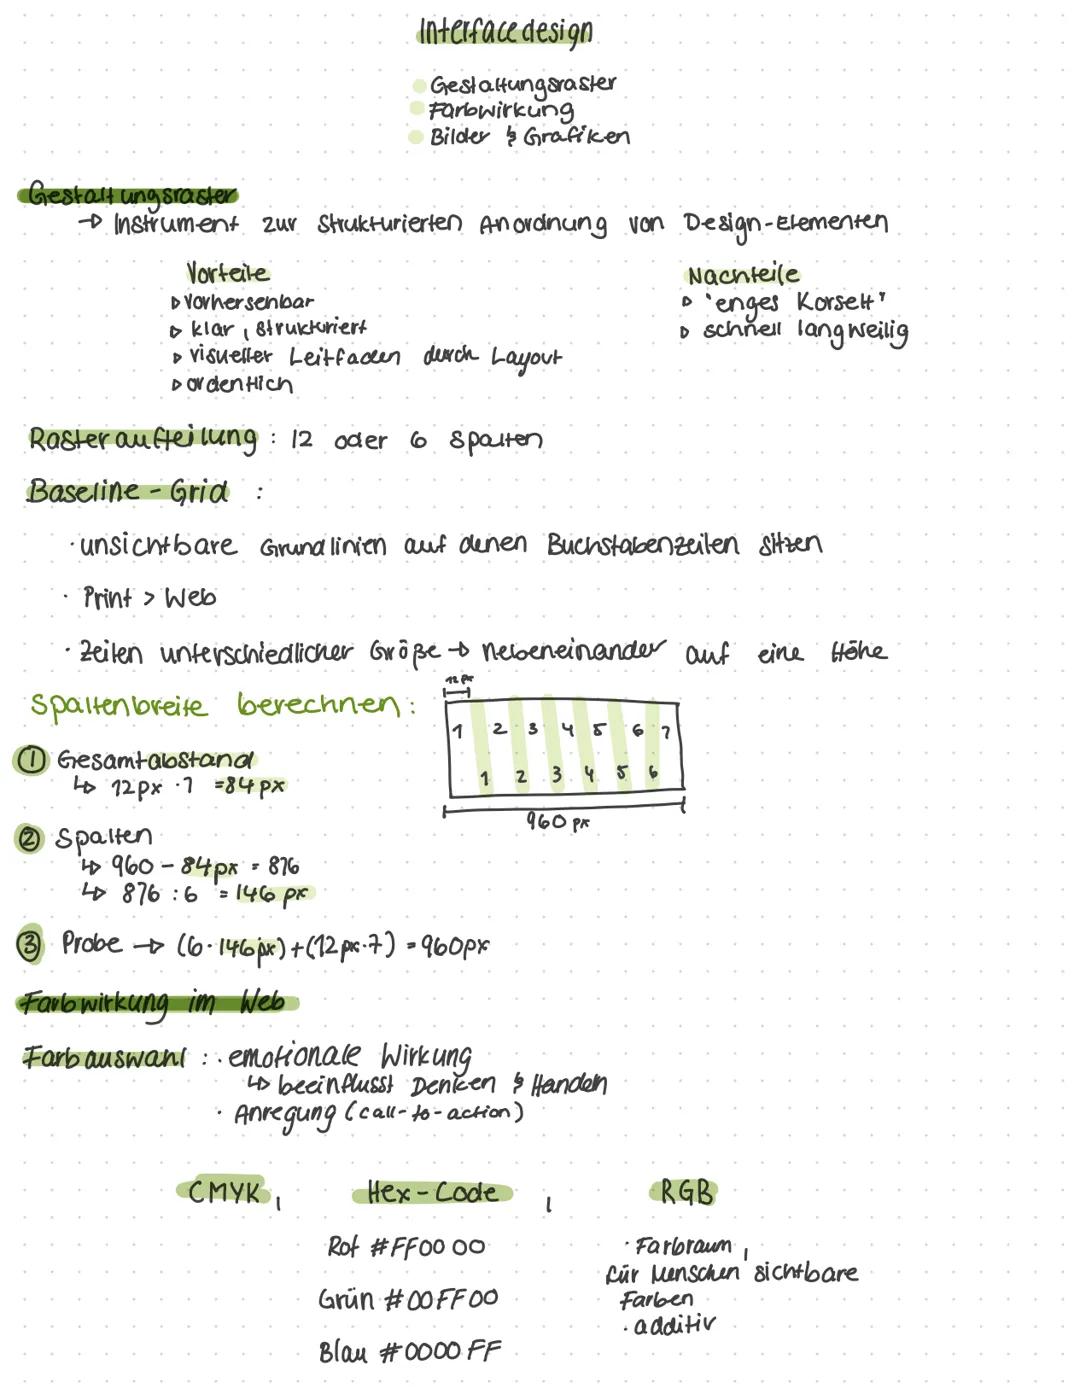 Interfacedesign
Gestaltungsraster
Farbwirkung
Bilder & Grafiken
Gestaltungsraster
→ Instrument zur strukturierten Anordnung von Design-Elementen
Vorteile
▹ vorhersehbar
▹ klar, strukturiert
▹ visueller Leitfaden durch Layout
▹ ordentlich
Nachteile
▹ "enges Korsett"
▹ schnell langweilig
Rasteraufteilung : 12 oder 6 Spalten
Baseline-Grid :
· unsichtbare Grundlinien auf denen Buchstabenzeilen sitzen
· Print > Web
· Zeilen unterschiedlicher Größe → nebeneinander auf eine Höhe
Spaltenbreite berechnen:
12 px
1 2 3 4 5 6 7
1 2 3 4 5 6
960 px
① Gesamtabstand
↳ 12px · 7 = 84 px
② Spalten
↳ 960 - 84px = 876
↳ 876 : 6 = 146 px
③ Probe → (6 · 146px) + (12px · 7) = 960px
Farbwirkung im Web
Farbauswahl : · emotionale Wirkung
↳ beeinflusst Denken & Handeln
· Anregung (call-to-action)
CMYK , Hex-Code , RGB
Rot #FF0000
Grün #00FF00
Blau #0000FF
· Farbraum,
für Menschen sichtbare
Farben
· additiv